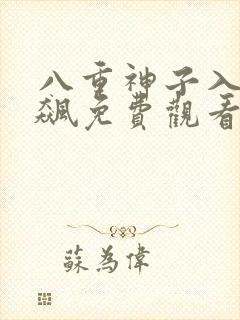 八重神子入
飆免費觀看
蘇為偉